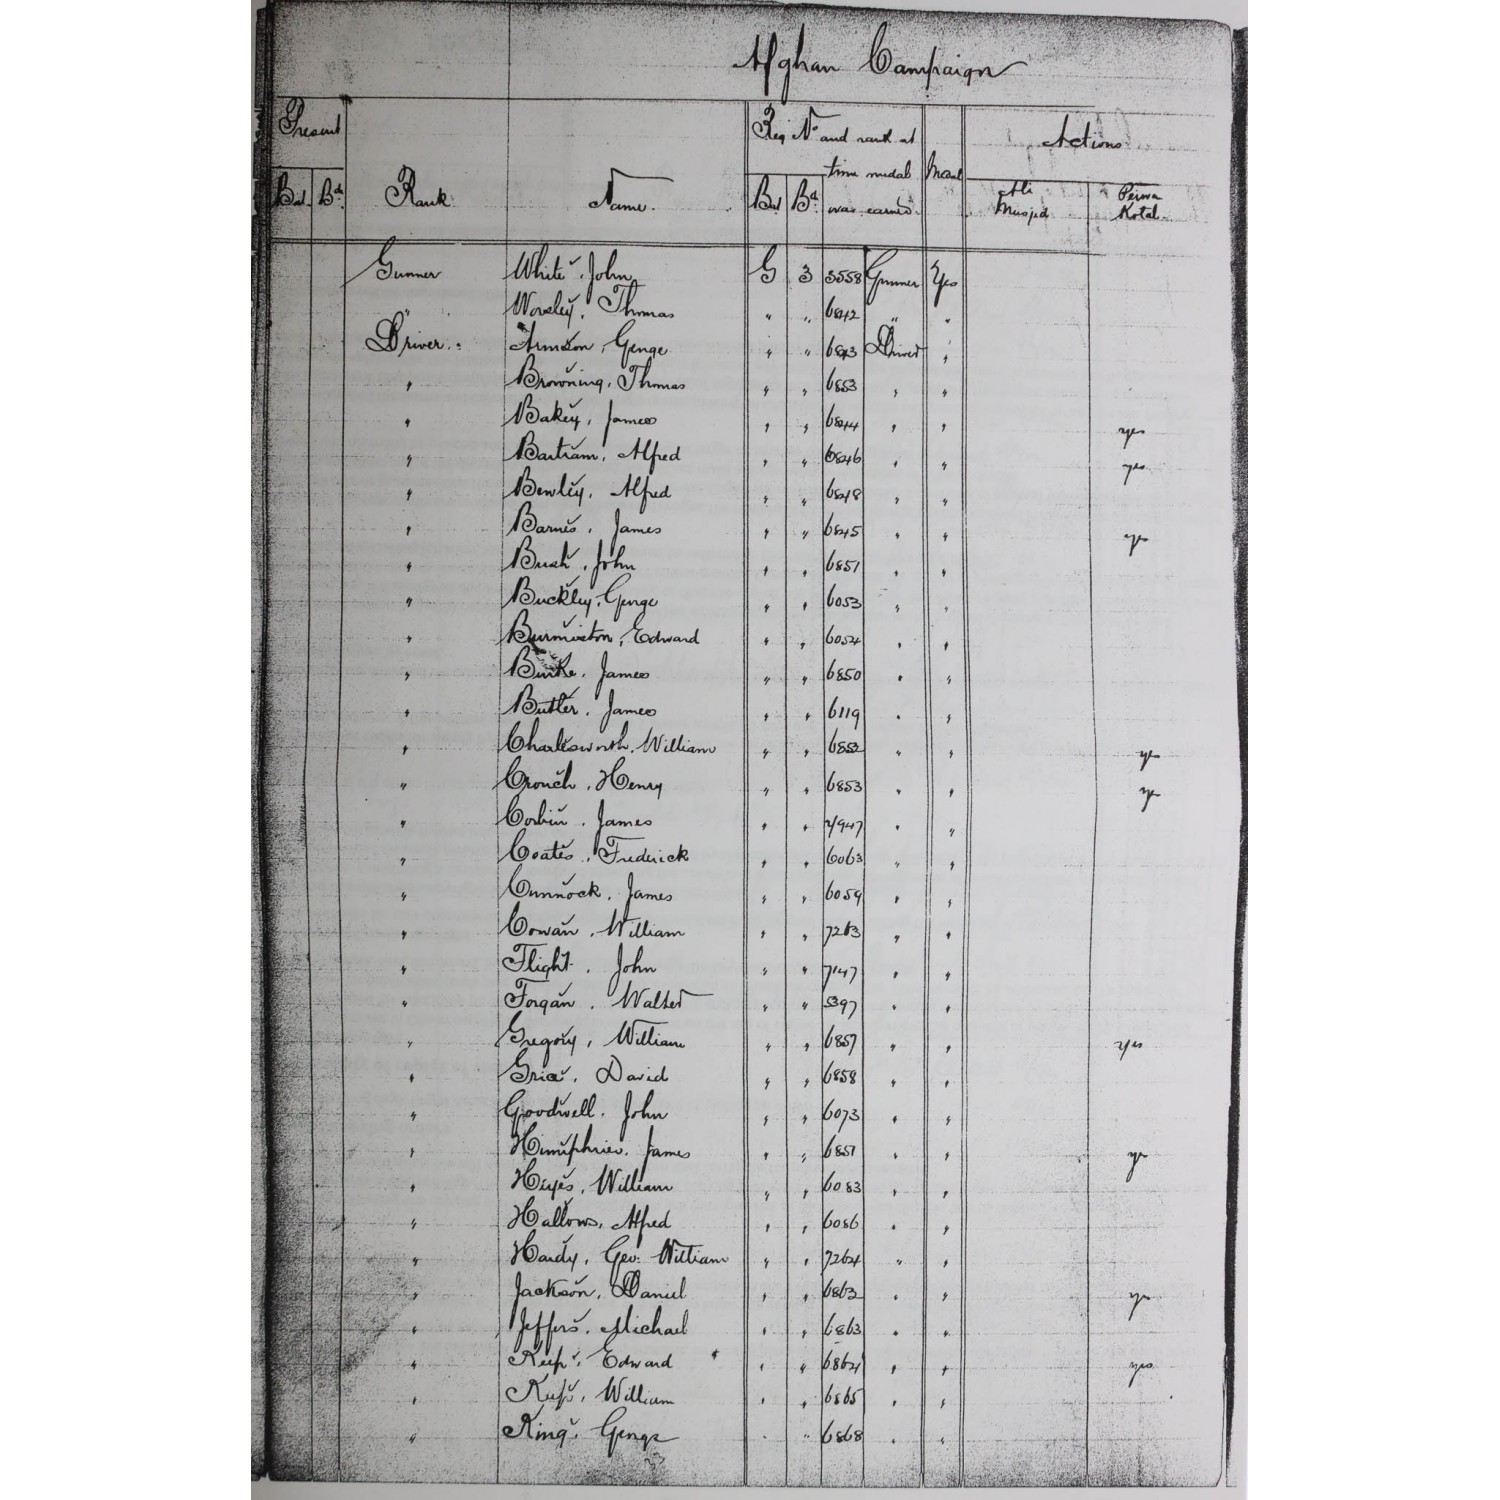 Afghan Campaign
Present Reg No and rank at time medal was earned. Medal Actions
Bat Bde Rank Name. Bat Bde Ali Musjid Peiwa Kotal.
Gunner White, John G 3 3558 Gunner Yes
" Worsley, Thomas " " 6842 " "
Driver. George " " 6843 Driver "
" Browning, Thomas " " 6853 " "
" James " " 6844 " " yes
" Bartram, Alfred " " 6846 " " yes.
" Bewley, Alfred " " 6848 " "
" Barnes, James " " 6845 " " yes
" Bush, John " " 6851 " "
" Buckley, George " " 6053 " "
" Burmiston, Edward " " 6054 " "
" Burke, James " " 6850 " "
" Butler, James " " 6119 " "
" Charlesworth, William " " 6852 " " ye
" Crouch, Henry " " 6853 " " ye
" Corbin, James " " " "
" Coates, Frederick " " 6063 " "
" Cunnock, James " " 6059 " "
" Cowan, William " " 7263 " "
" Flight, John " " 7147 " "
" Forgan, Walter " " 5397 " "
" Gregory, William " " 6857 " " Yes
" Grice, David " " 6858 " "
" Goodwell, John " " 6073 " "
" Humphries, James " " 6851 " " ye
" William " " 6083 " "
" Hallows, Alfred " " 6086 " "
" Hardy, Geo. William " " 7264 " "
" Jackson, Daniel " " 6862 " " ye
" Jeffers, Michael " " 6863 " "
" Keep, Edward " " 6864 " " yes
" William " " 6865 " "
" King, George " " 6868 " "